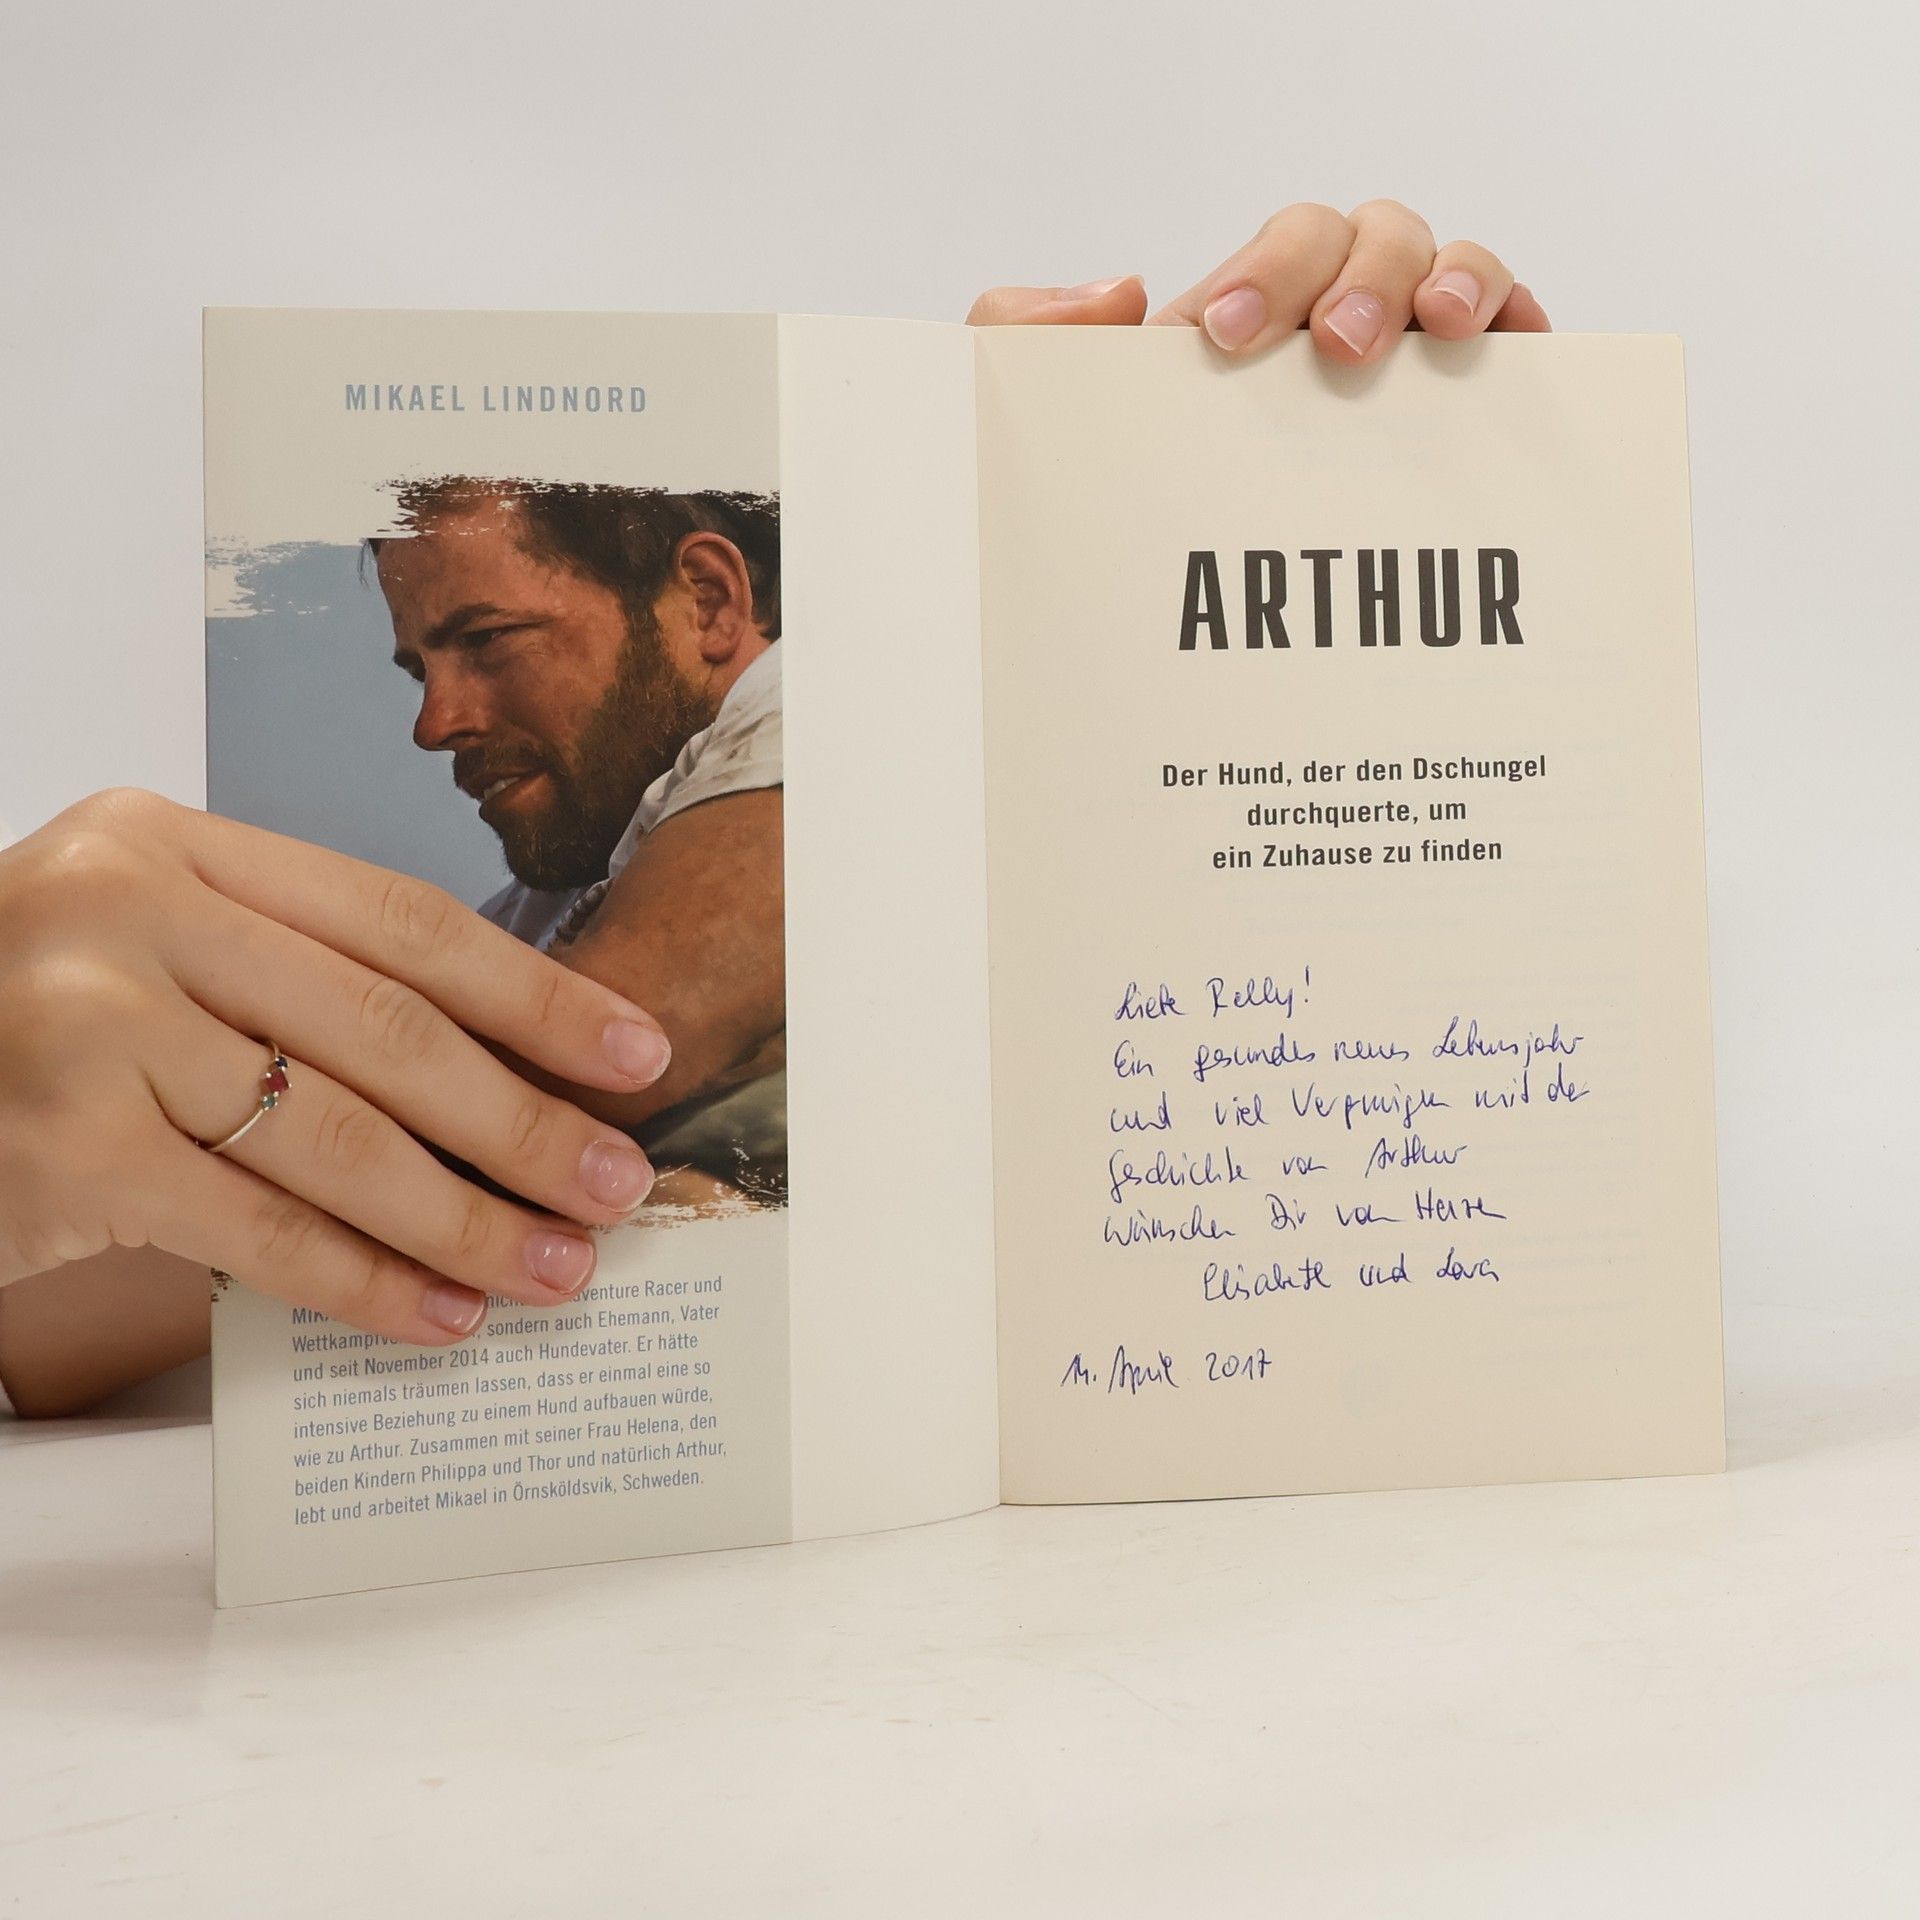 MIKAEL LINDNORD
Adventure Racer und
Wettkampf sondern auch Ehemann, Vater
und seit November 2014 auch Hundevater. Er hätte
sich niemals träumen lassen, dass er einmal eine so
intensive Beziehung zu einem Hund aufbauen würde,
wie zu Arthur. Zusammen mit seiner Frau Helena, den
beiden Kindern Philippa und Thor und natürlich Arthur,
lebt und arbeitet Mikael in Örnsköldsvik, Schweden.
ARTHUR
Der Hund, der den Dschungel
durchquerte, um
ein Zuhause zu finden
Liebe Relly!
Ein gesundes neues Lebensjahr
und viel Vergnügen mit der
Geschichte von Arthur
wünschen Dir von Herzen
Elisabeth und
April 2017